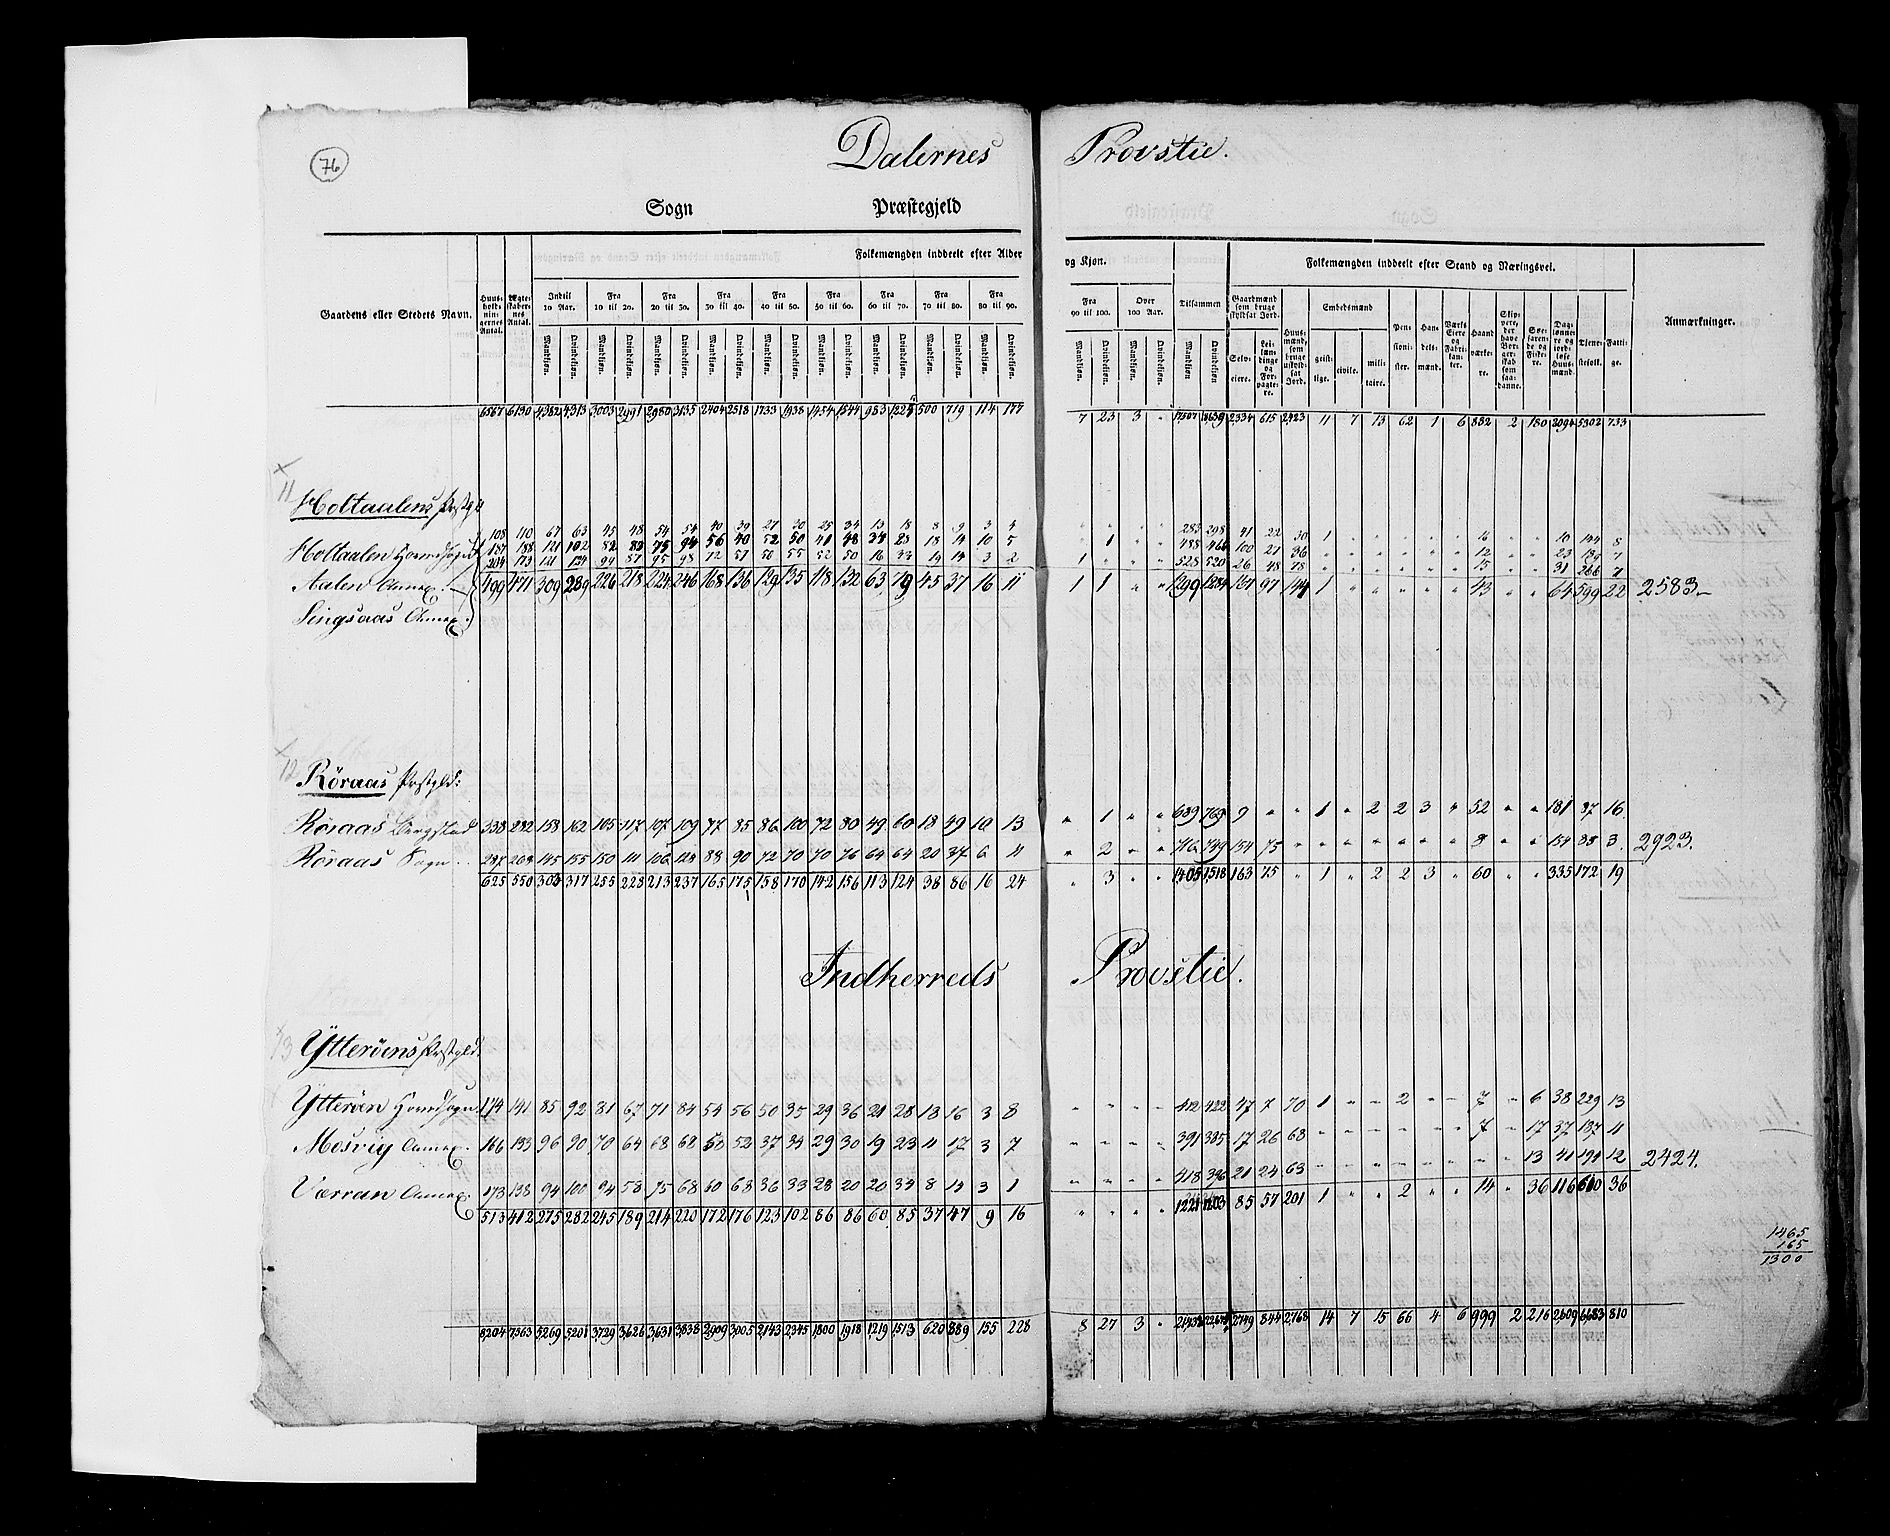 76
Dalernes Provstie.
Sogn Præstegjeld
Folkemængden inddeelt efter Alder og Kjøn. Folkemængden inddeelt efter Stand og Næringsvei.
Gaardens eller Stedets Navn. Huus-holdnin-gernes Antal. Ægte-skaber-nes Antal. Indtil 10 Aar. Fra 10 til 20. Fra 20 til 30. Fra 30 til 40. Fra 40 til 50. Fra 50 til 60. Fra 60 til 70. Fra 70 til 80. Fra 80 til 90. Fra 90 til 100. Over 100 Aar. Tilsammen Gaardmænd som bruge skyldsat Jord. Huus-mænd, som bruge uskyld-sat Jord. Embedsmænd Pen-sioni-ster. Han-dels-mænd. Værks Eiere og Fabri-kan-ter. Haand-værke-re. Skip-pere, der have Bor-ger-skab som saa-danne. Søe-faren-de og Fiske-re. Dag-lønne-re og jord-løse Huus-mænd. Tjene-stefolk. Fatti-ge. Anmærkninger.
Mandkjøn. Qvindekjøn. Selv-eiere. Lei-lændinge og For-pagte-re. geist-lige. civile. mili-taire.
6567 6130 4382 4313 3003 2991 2980 3135 2404 2518 1733 1938 1454 1544 983 1225 500 719 114 177 7 23 3 " 17507 18639 2334 615 2423 11 7 13 62 1 6 882 2 180 2094 5302 733
11
Holtaalens Prstgld
108 110 67 63 45 48 54 54 40 39 27 30 25 34 13 18 8 9 3 4 " " " " 283 298 41 22 30 1 " " " " " 16 " " 10 144 8
Holtaalen Hovedsogn 187 188 121 102 82 83 75 94 56 40 52 50 41 48 34 23 18 14 10 5 " 1 " " 488 466 100 27 36 " " " " " " 12 " " 23 189 7
204 173 121 124 99 87 95 98 72 57 50 55 52 50 16 33 19 14 3 2 1 " " " 528 520 26 48 78 " " " " " " 15 " " 31 266 7
Aalen Annex. 499 471 309 289 226 218 224 246 168 136 129 135 118 132 63 79 45 37 16 11 1 1 " " 1299 1284 167 97 144 1 " " " " " 43 " " 64 599 22 2583
Singsaas Annex.
12
Röraas Prstgld:
Röraas Bergstad 338 282 158 162 105 117 107 109 77 85 86 100 72 80 49 60 18 49 10 13 " 1 " " 689 769 9 " " 1 " 2 2 3 " 52 " " 181 87 16
Röraas Sogn 287 268 145 155 150 111 106 128 88 90 72 70 70 76 64 64 20 37 6 11 " 2 " " 716 749 154 75 " " " " " " " 8 " " 154 85 3. 2923.
625 550 303 317 255 228 213 237 165 175 158 170 142 156 113 124 38 86 16 24 " 3 " " 1405 1518 163 75 " 1 " 2 2 3 " 60 " " 335 172 19
Indherreds Provstie.
13
Ytteröens Prstgld.
Ytteröen Hovedsogn. 174 141 85 92 81 67 71 84 54 56 50 35 29 36 21 28 18 16 3 8 " " " " 412 422 47 7 70 1 " " 2 " " 7 " 6 38 229 13
Mosvig Annex. 166 133 96 90 70 64 68 68 58 52 37 34 29 30 19 23 11 17 3 7 " " " " 391 385 17 26 68 " " " " " " 7 " 17 37 187 11
Værran Annex. 173 138 94 100 94 58 75 68 60 68 36 33 28 20 20 34 8 14 3 1 " " " " 418 396 21 24 63 " " " " " " " " 13 41 194 12 2424.
513 412 275 282 245 189 214 220 172 176 123 102 86 86 60 85 37 47 9 16 " " " " 1221 1203 85 57 201 1 " " 2 " " 14 " 36 116 610 36
1465
165
1300
8204 7563 5269 5201 3729 3626 3631 3838 2909 3005 2143 2345 1800 1918 1219 1513 620 889 155 228 8 27 3 " 21432 22644 2749 844 2768 14 7 15 66 4 6 999 2 216 2609 6683 810